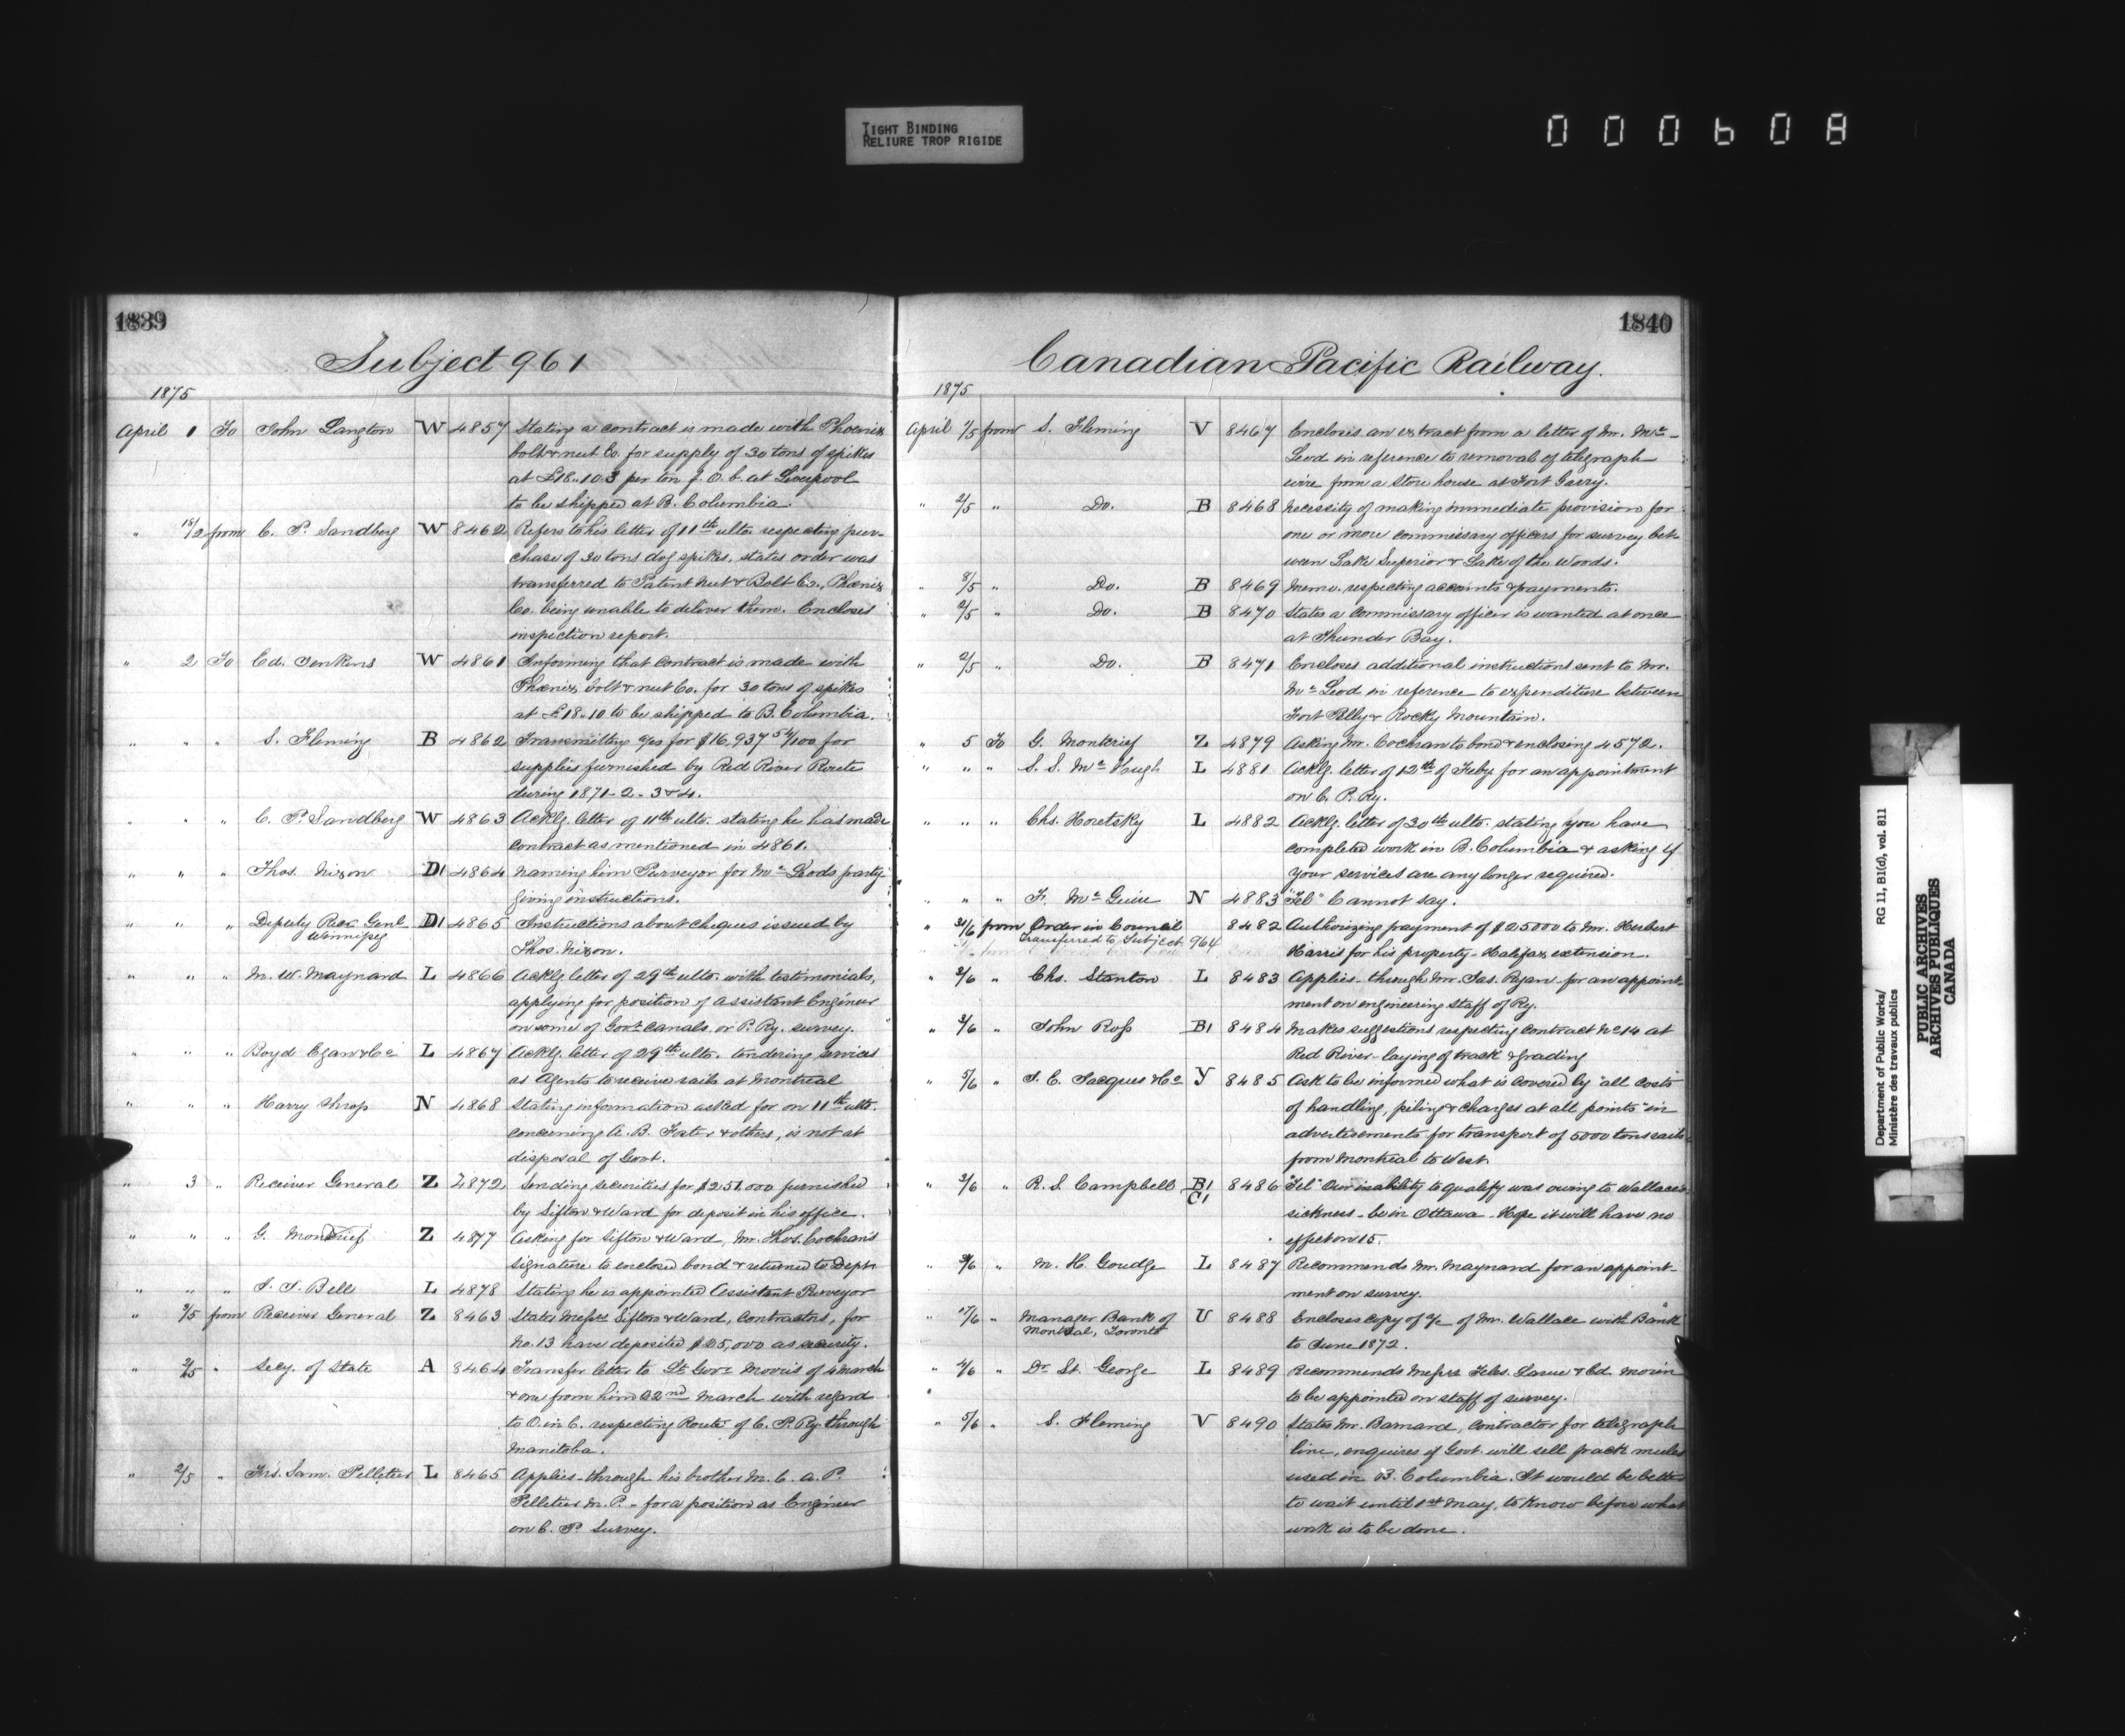 TIGHT BINDING
RELIURE TROP RIGIDE
000608
1839
Subject 961
1875
April 1 To John Langton W 4857 Stating a contract is made with Phoenix
bolt & nut Co. for supply of 30 tons of spikes
at £18.10.3 per ton f. O. b. at Liverpool
to be shipped at B. Columbia.
" 18/2 from C. P. Sandberg W 8462 Refers to his letter of 11th ulto. respecting pur-
chase of 30 tons dog spikes, states order was
transferred to Patent Nut & Bolt Co., Phoenix
Co. being unable to deliver them. Encloses
inspection report.
" 2 To Ed. Jenkins W 4861 Informing that contract is made with
Phoenix bolt & nut Co. for 30 tons of spikes
at £18.10 to be shipped to B. Columbia.
" " " S. Fleming B 4862 Transmitting a/cs for $16,937 54/100 for
supplies furnished by Red River Route
during 1871-2-3 & 4.
" " " C. P. Sandberg W 4863 Acklg. letter of 11th ulto. stating he has made
contract as mentioned in 4861.
" " " Thos. Nixon D1 4864 Naming him Purveyor for Mc Leods party-
giving instructions.
" " " Deputy Rec. Genl. D1 4865 Instructions about cheques issued by
Winnipeg Thos. Nixon.
" " " M. W. Maynard L 4866 Acklg. letter of 29th ulto. with testimonials,
applying for position of Assistant Engineer
on some of Govt. Canals or P. Ry. survey.
" " " Boyd Egan & Co L 4867 Acklg. letter of 29th ulto. tendering services
as Agents to receive rails at Montreal
" " " Harry Throp N 4868 Stating information asked for on 11th ulto.
concerning A. B. Foster & others, is not at
disposal of Govt.
" 3 " Receiver General Z 4872 Sending securities for $251.000 furnished
by Sifton & Ward for deposit in his office.
" " " G. Moncrief Z 4877 Asking for Sifton & Ward, Mr. Thos. Cochran's
signature to enclosed bond & returned to Dept.
" " " J. J. Bell L 4878 Stating he is appointed Assistant Purveyor
" 3/5 from Receiver General Z 8463 States Messrs Sifton & Ward, Contractors, for
No. 13 have deposited as security.
" 2/5 " Secy. of State A 8464 Transfer letter to Lt. Govr. Morris of 4 March
& one from him 22nd March with regard
to O. in C. respecting Route of C. P. Ry. through
Manitoba.
" 2/5 " Frs. Sam. Pelletier L 8465 Applies - through his brother M. C. A. P.
Pelletier M. P. - for a position as Engineer
on C. P. Survey.
1840
Canadian Pacific Railway.
1875
April 1/5 from S. Fleming V 8467 Encloses an extract from a letter of Mr. Mc-
Leod in reference to removal of telegraph
wire from a store house at Fort Garry.
" 2/5 " Do. B 8468 Necessity of making immediate provision for
one or more commissary officers for survey bet-
ween Lake Superior & Lake of the Woods.
" 8/5 " Do. B 8469 Memo. respecting accounts & payments.
" 2/5 " Do. B 8470 States a commissary officer is wanted at once
at Thunder Bay.
" 2/5 " Do. B 8471 Encloses additional instructions sent to Mr.
Mc Leod in reference to expenditure between
Fort Pelly & Rocky Mountain.
" 5 To G. Moncrief Z 4879 Asking Mr. Cochran to bond & enclosing 4572.
" " " S. S. Mc Hugh L 4881 Acklg. letter of 12th of Feby. for an appointment
on C. P. Ry.
" " " Chs. Horetzky L 4882 Acklg. letter of 30th ulto. stating you have
completed work in B. Columbia & asking if
your services are any longer required.
" " " F. Mc Guire N 4883 "Tel" Cannot say.
" 31/6 from Order in Council 8482 Authorizing payment of $25000 to Mr. Herbert
Transferred to Subject 964 Harris for his property - Halifax extension.
" 2/6 " Chs. Stanton L 8483 Applies - through Mr. Jas. Ryan - for an appoint-
ment on engineering staff of Ry.
" 3/6 " John Ross B1 8484 Makes suggestions respecting contract No. 14 at
Red River - laying of track & grading
" 5/6 " J. E. Jacques & Co Y 8485 Ask to be informed what is covered by "all costs
of handling, piling & charges at all points" in
advertisements for transport of 5000 tons rails
from Montreal to West.
" 3/6 " R. S. Campbell B1 8486 "Tel" Our inability to qualify was owing to Wallace's
C1 sickness - be in Ottawa - Hope it will have no
effect on 15.
" 3/6 " M. H. Goudge L 8487 Recommends Mr. Maynard for an appoint-
ment on survey.
" 17/6 " Manager Bank of U 8488 Encloses copy of a/c of Mr. Wallace with Bank
Montreal, Toronto to June 1872.
" 4/6 " Dr. St. George L 8489 Recommends Messrs Larue & Ed. Morin
to be appointed on staff of survey.
" 5/6 " S. Fleming V 8490 States Mr. Barnard, Contractor for telegraph
line, enquires if Govt. will sell pack mules
used in B. Columbia. It would be better
to wait until 1st May, to know before what
work is to be done.
Department of Public Works/ RG 11, B1(d), vol. 811
Ministère des travaux publics
PUBLIC ARCHIVES
ARCHIVES PUBLIQUES
CANADA